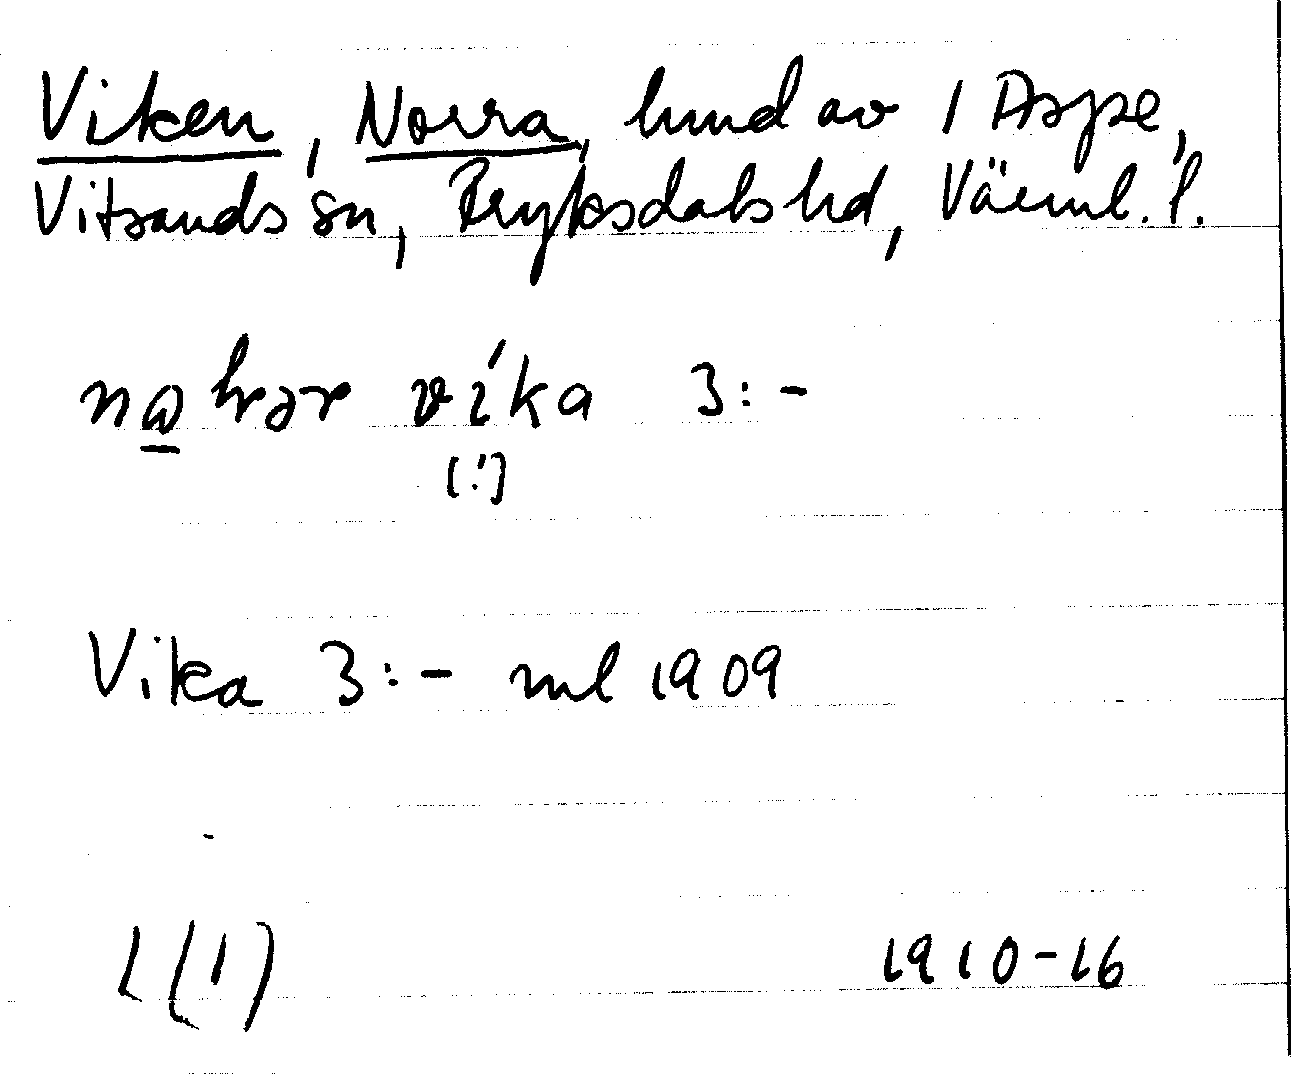 Viken, Norra, hmd av 1 Aspe,
Vitsands sn, Fryksdals hd, Värml. l.
víka 3:-
[!]
Vika 3:- ml 1909
1 (1) 1910-16